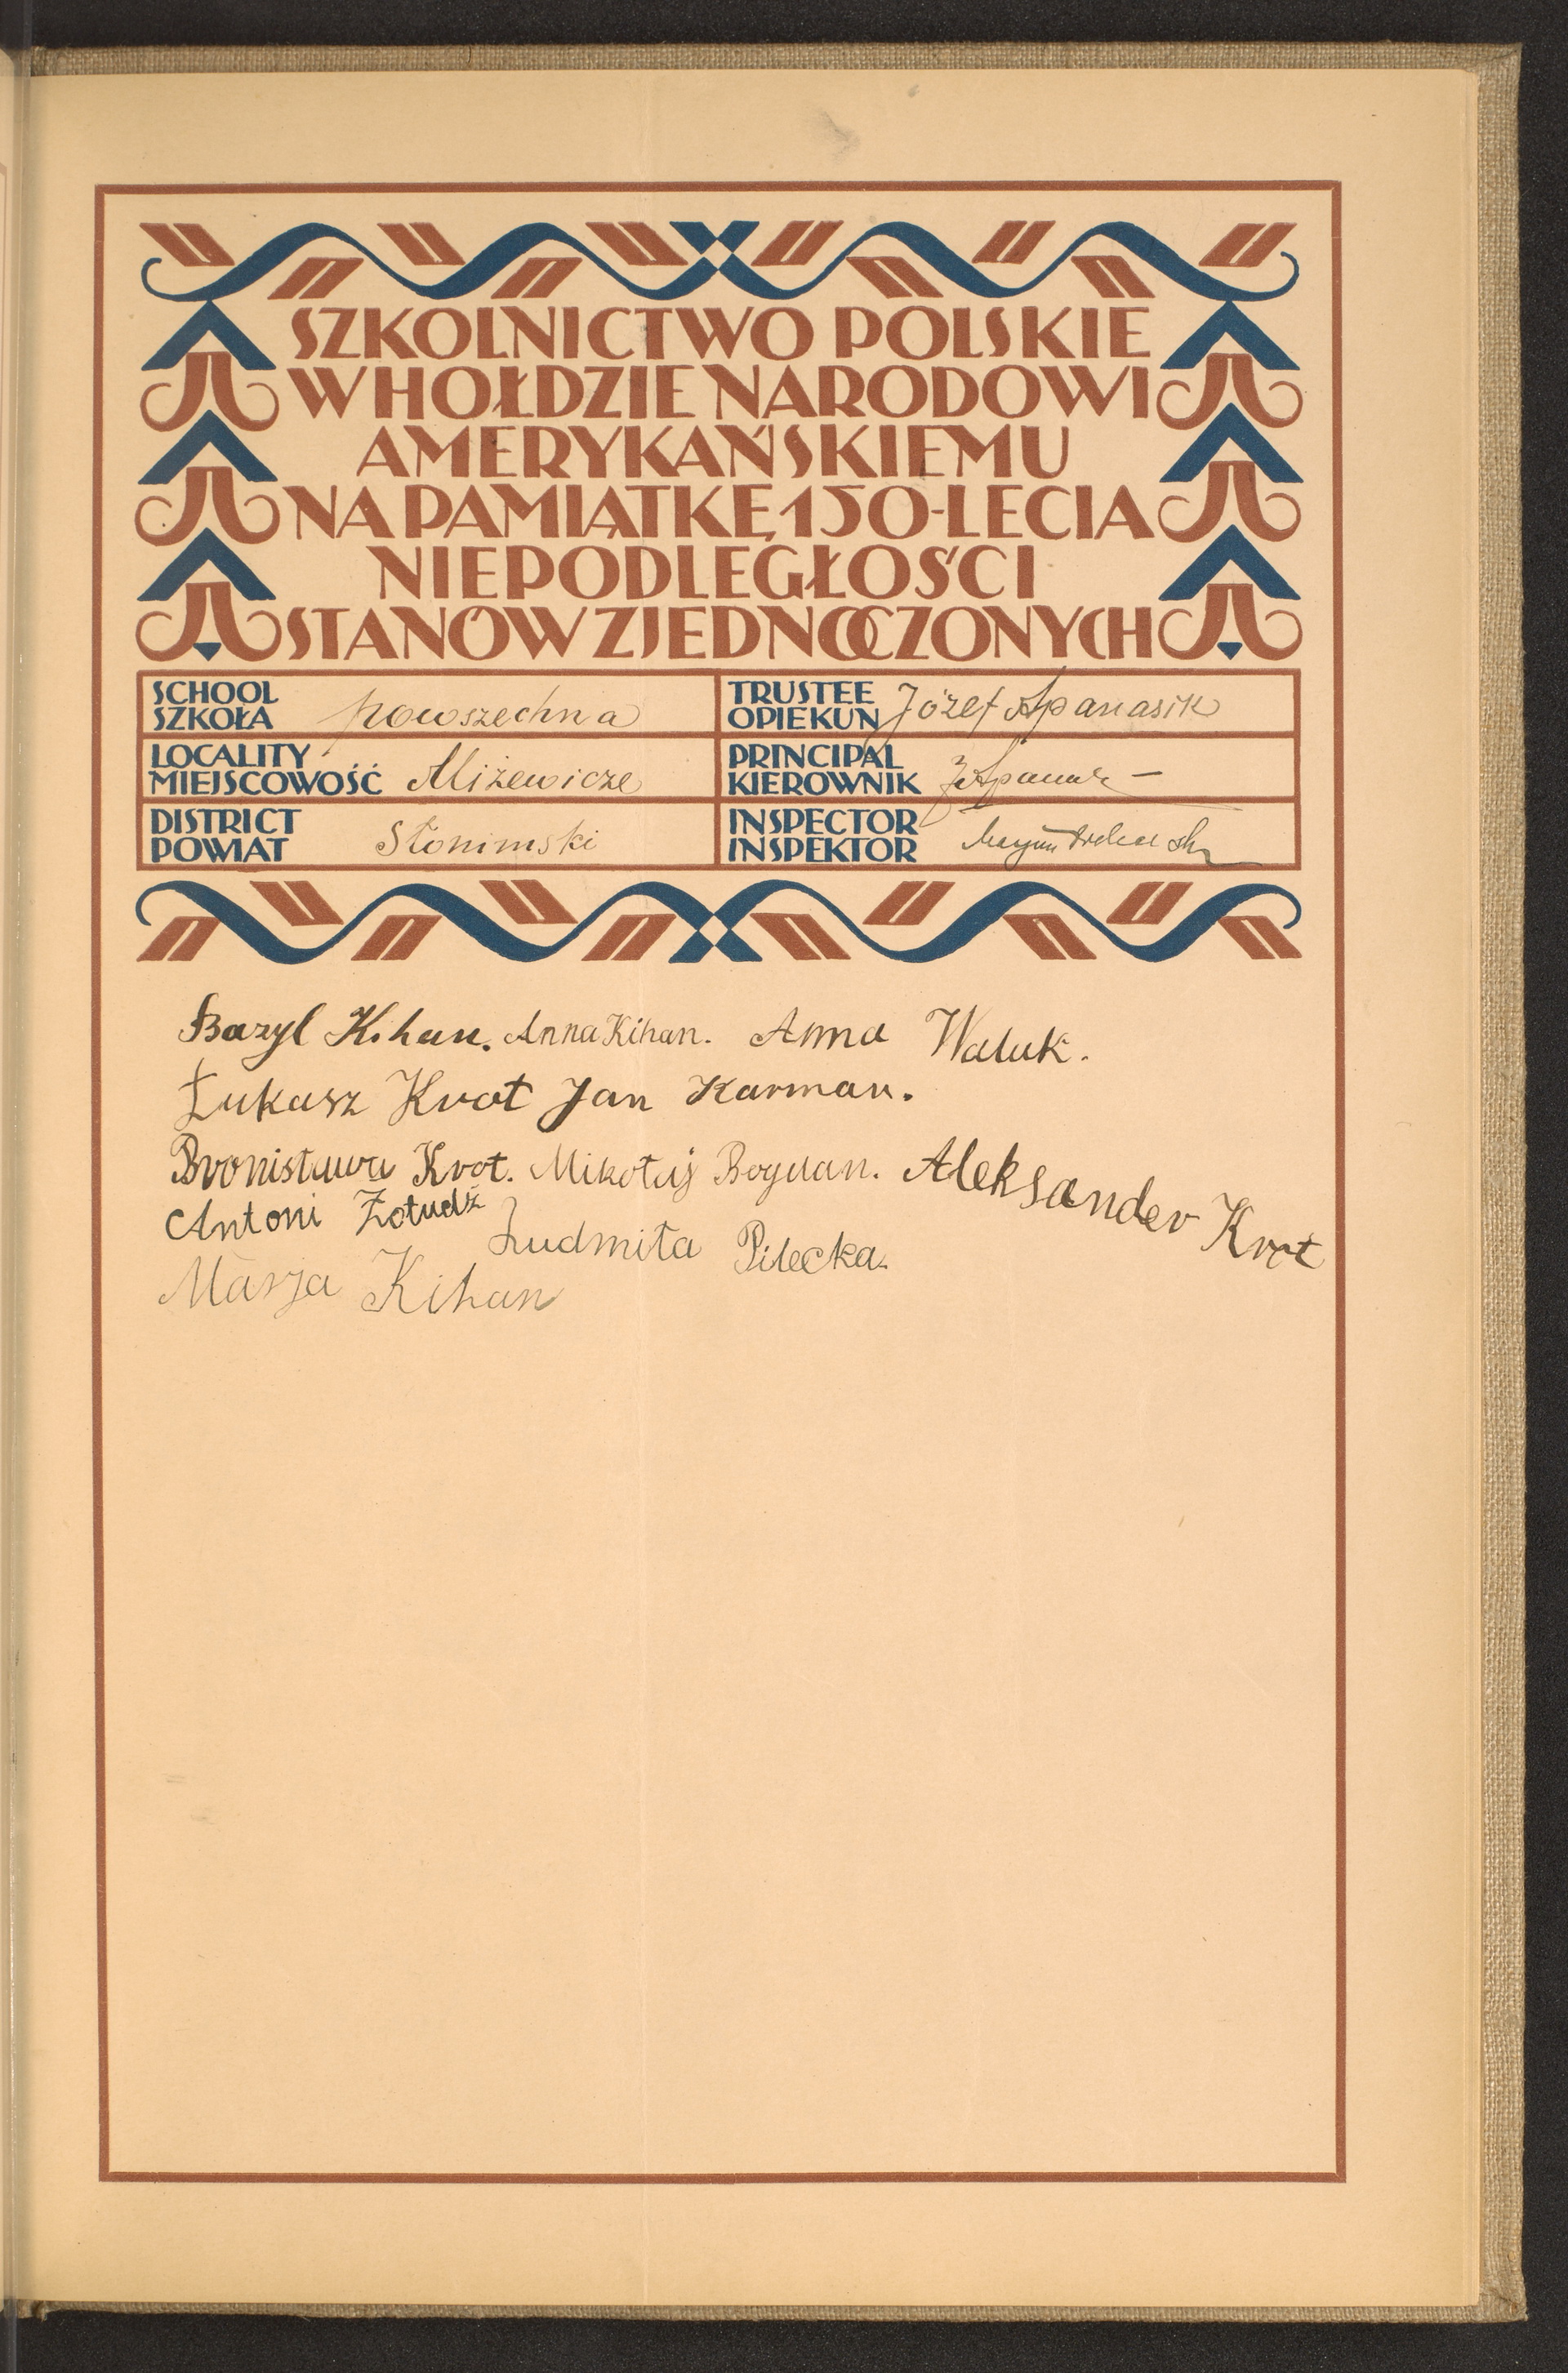 SZKOLNICTWO POLSKIE
W HOŁDZIE NARODOWI
AMERYKAŃSKIEMU
NA PAMIĄTKĘ 150-LECIA
NIEPODLEGŁOŚCI
STANÓW ZJEDNOCZONYCH
SCHOOL
SZKOŁA powszechna
TRUSTEE
OPIEKUN Józef Apanasik
LOCALITY
MIEJSCOWOŚĆ Miżewicze
PRINCIPAL
KIEROWNIK
DISTRICT
POWIAT Słonimski
INSPECTOR
INSPEKTOR
Bazyl Kihan. Anna Kihan. Anna Waluk.
Łukasz Krot Jan Karman.
Bronisława Krot. Mikołaj Bogdan. Aleksander Krot
Antoni Żołudź Ludmiła Pilecka.
Marja Kihan